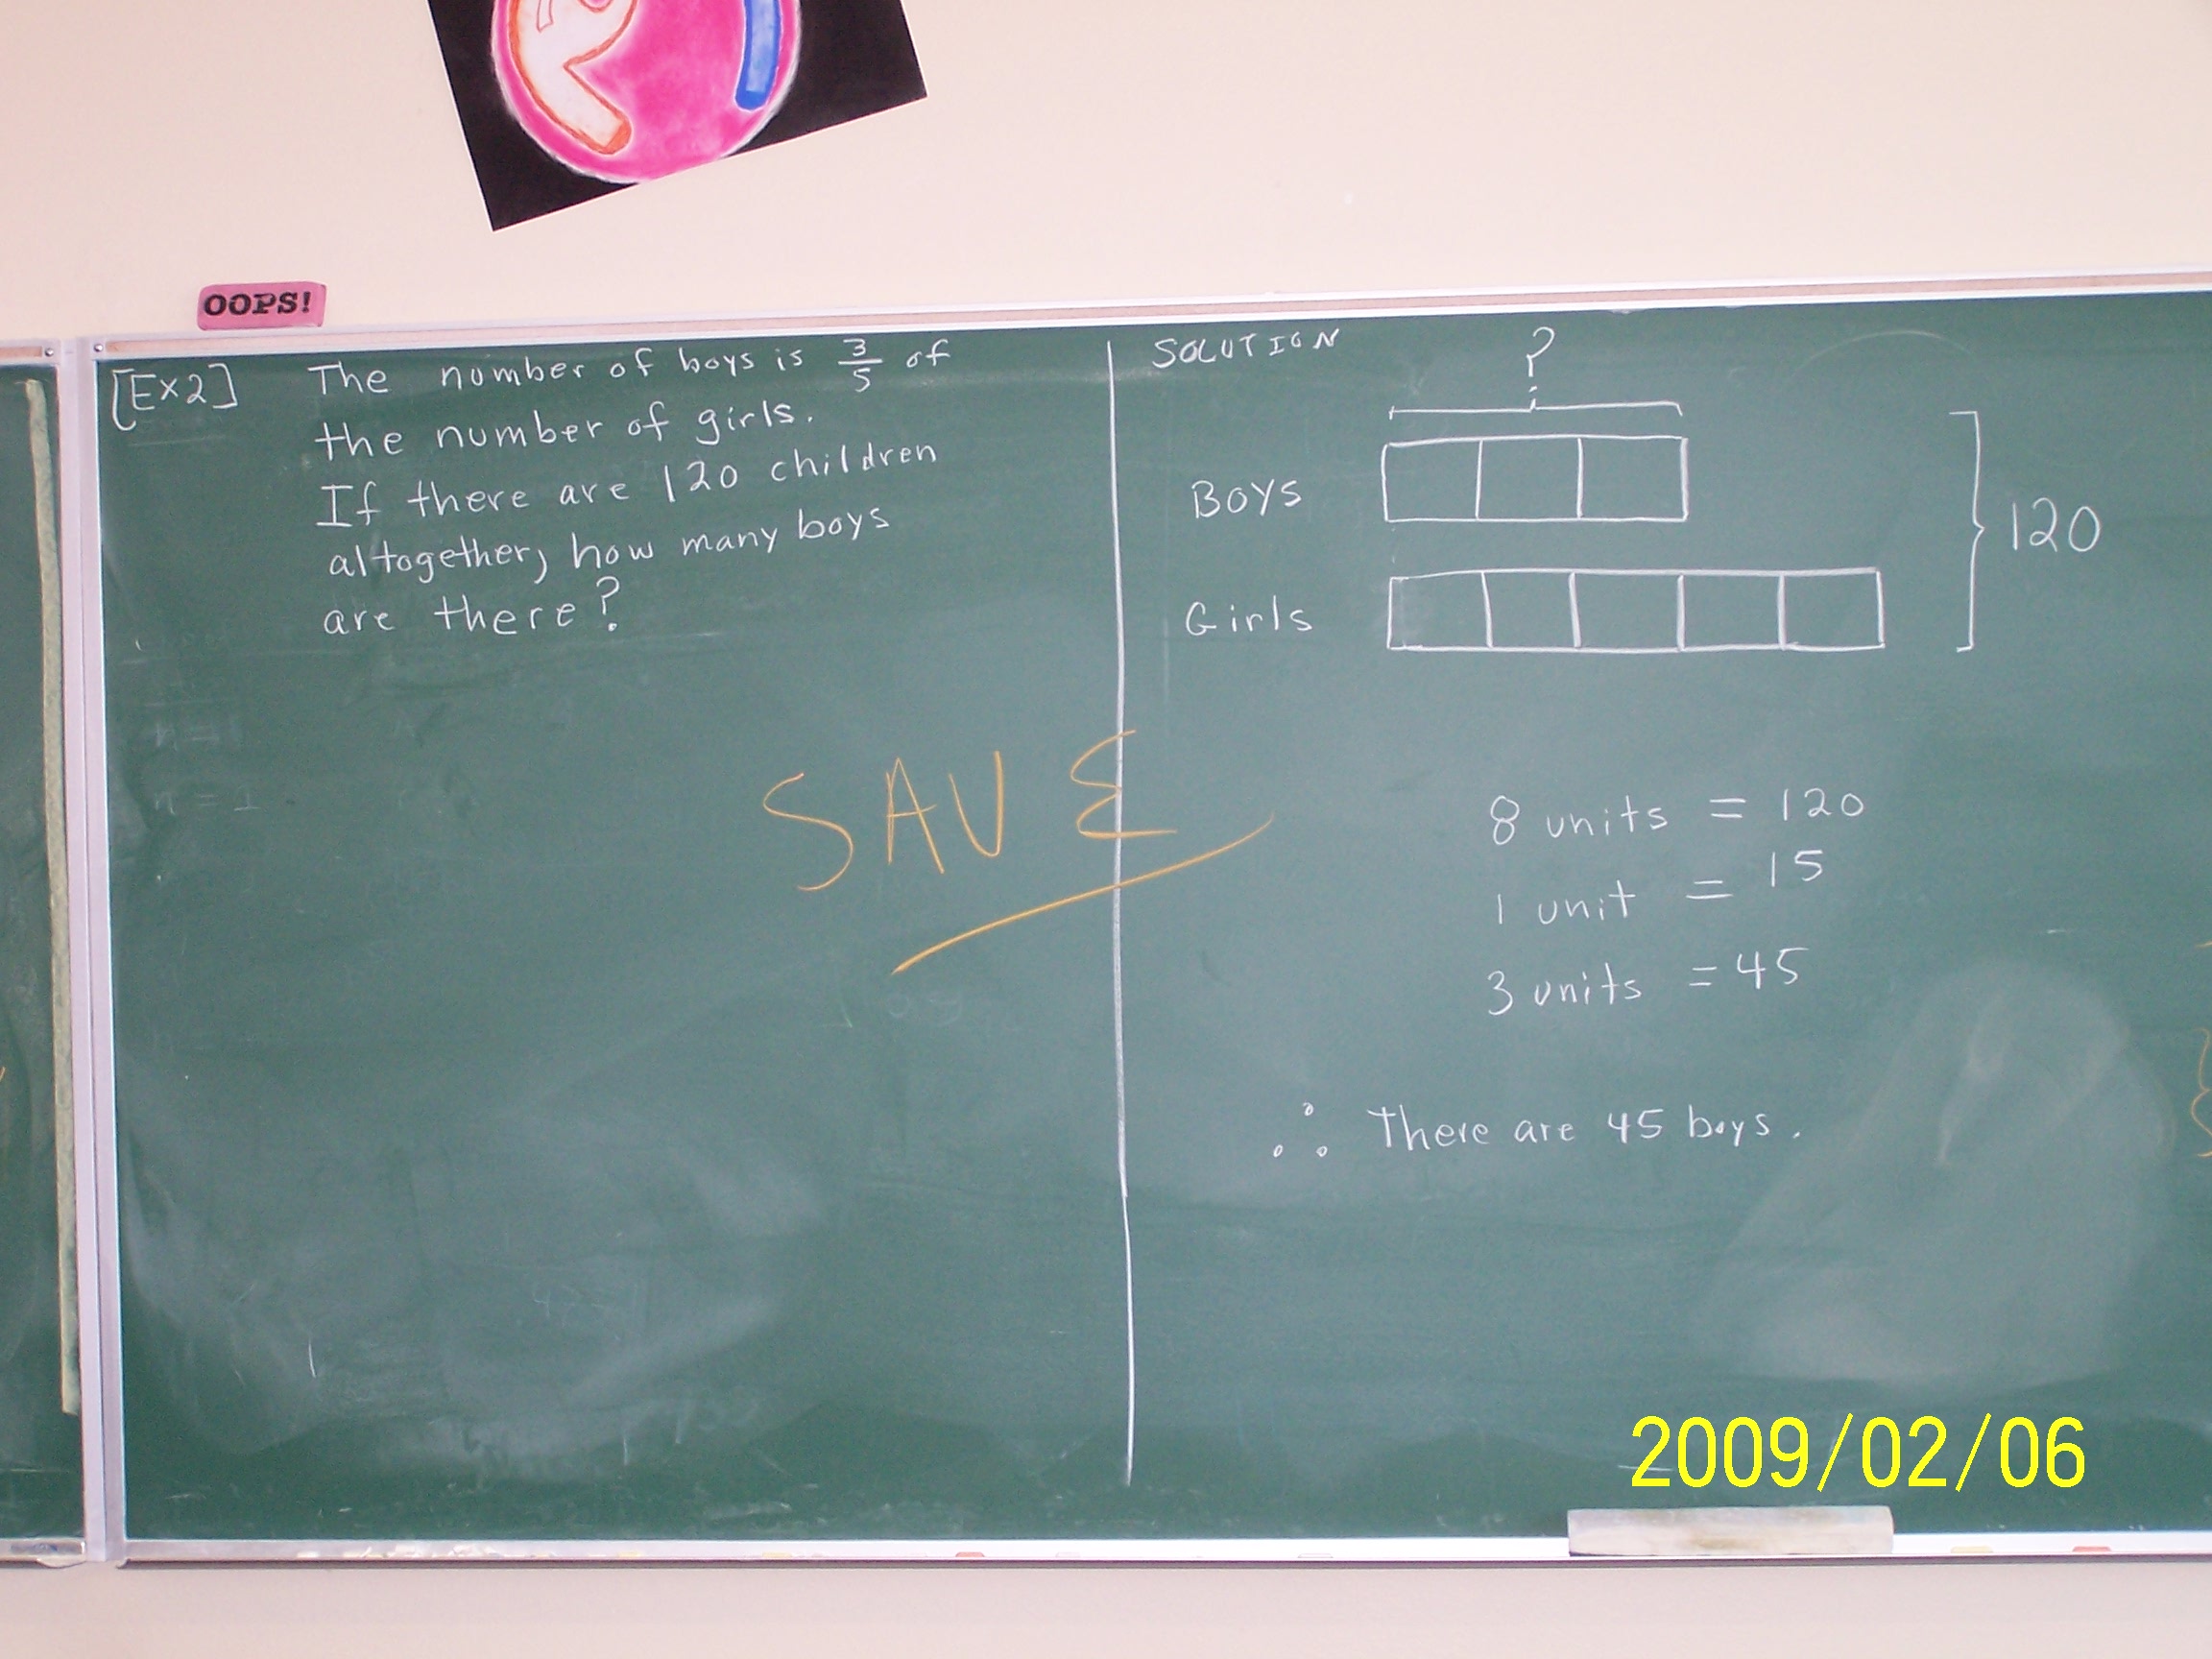 OOPS!
[Ex2] The number of boys is 3/5 of
the number of girls.
If there are 120 children
altogether, how many boys
are there?
SOLUTION
?
Boys
Girls
120
SAVE
8 units = 120
1 unit = 15
3 units = 45
∴ There are 45 boys.
n=1
n=1
2009/02/06